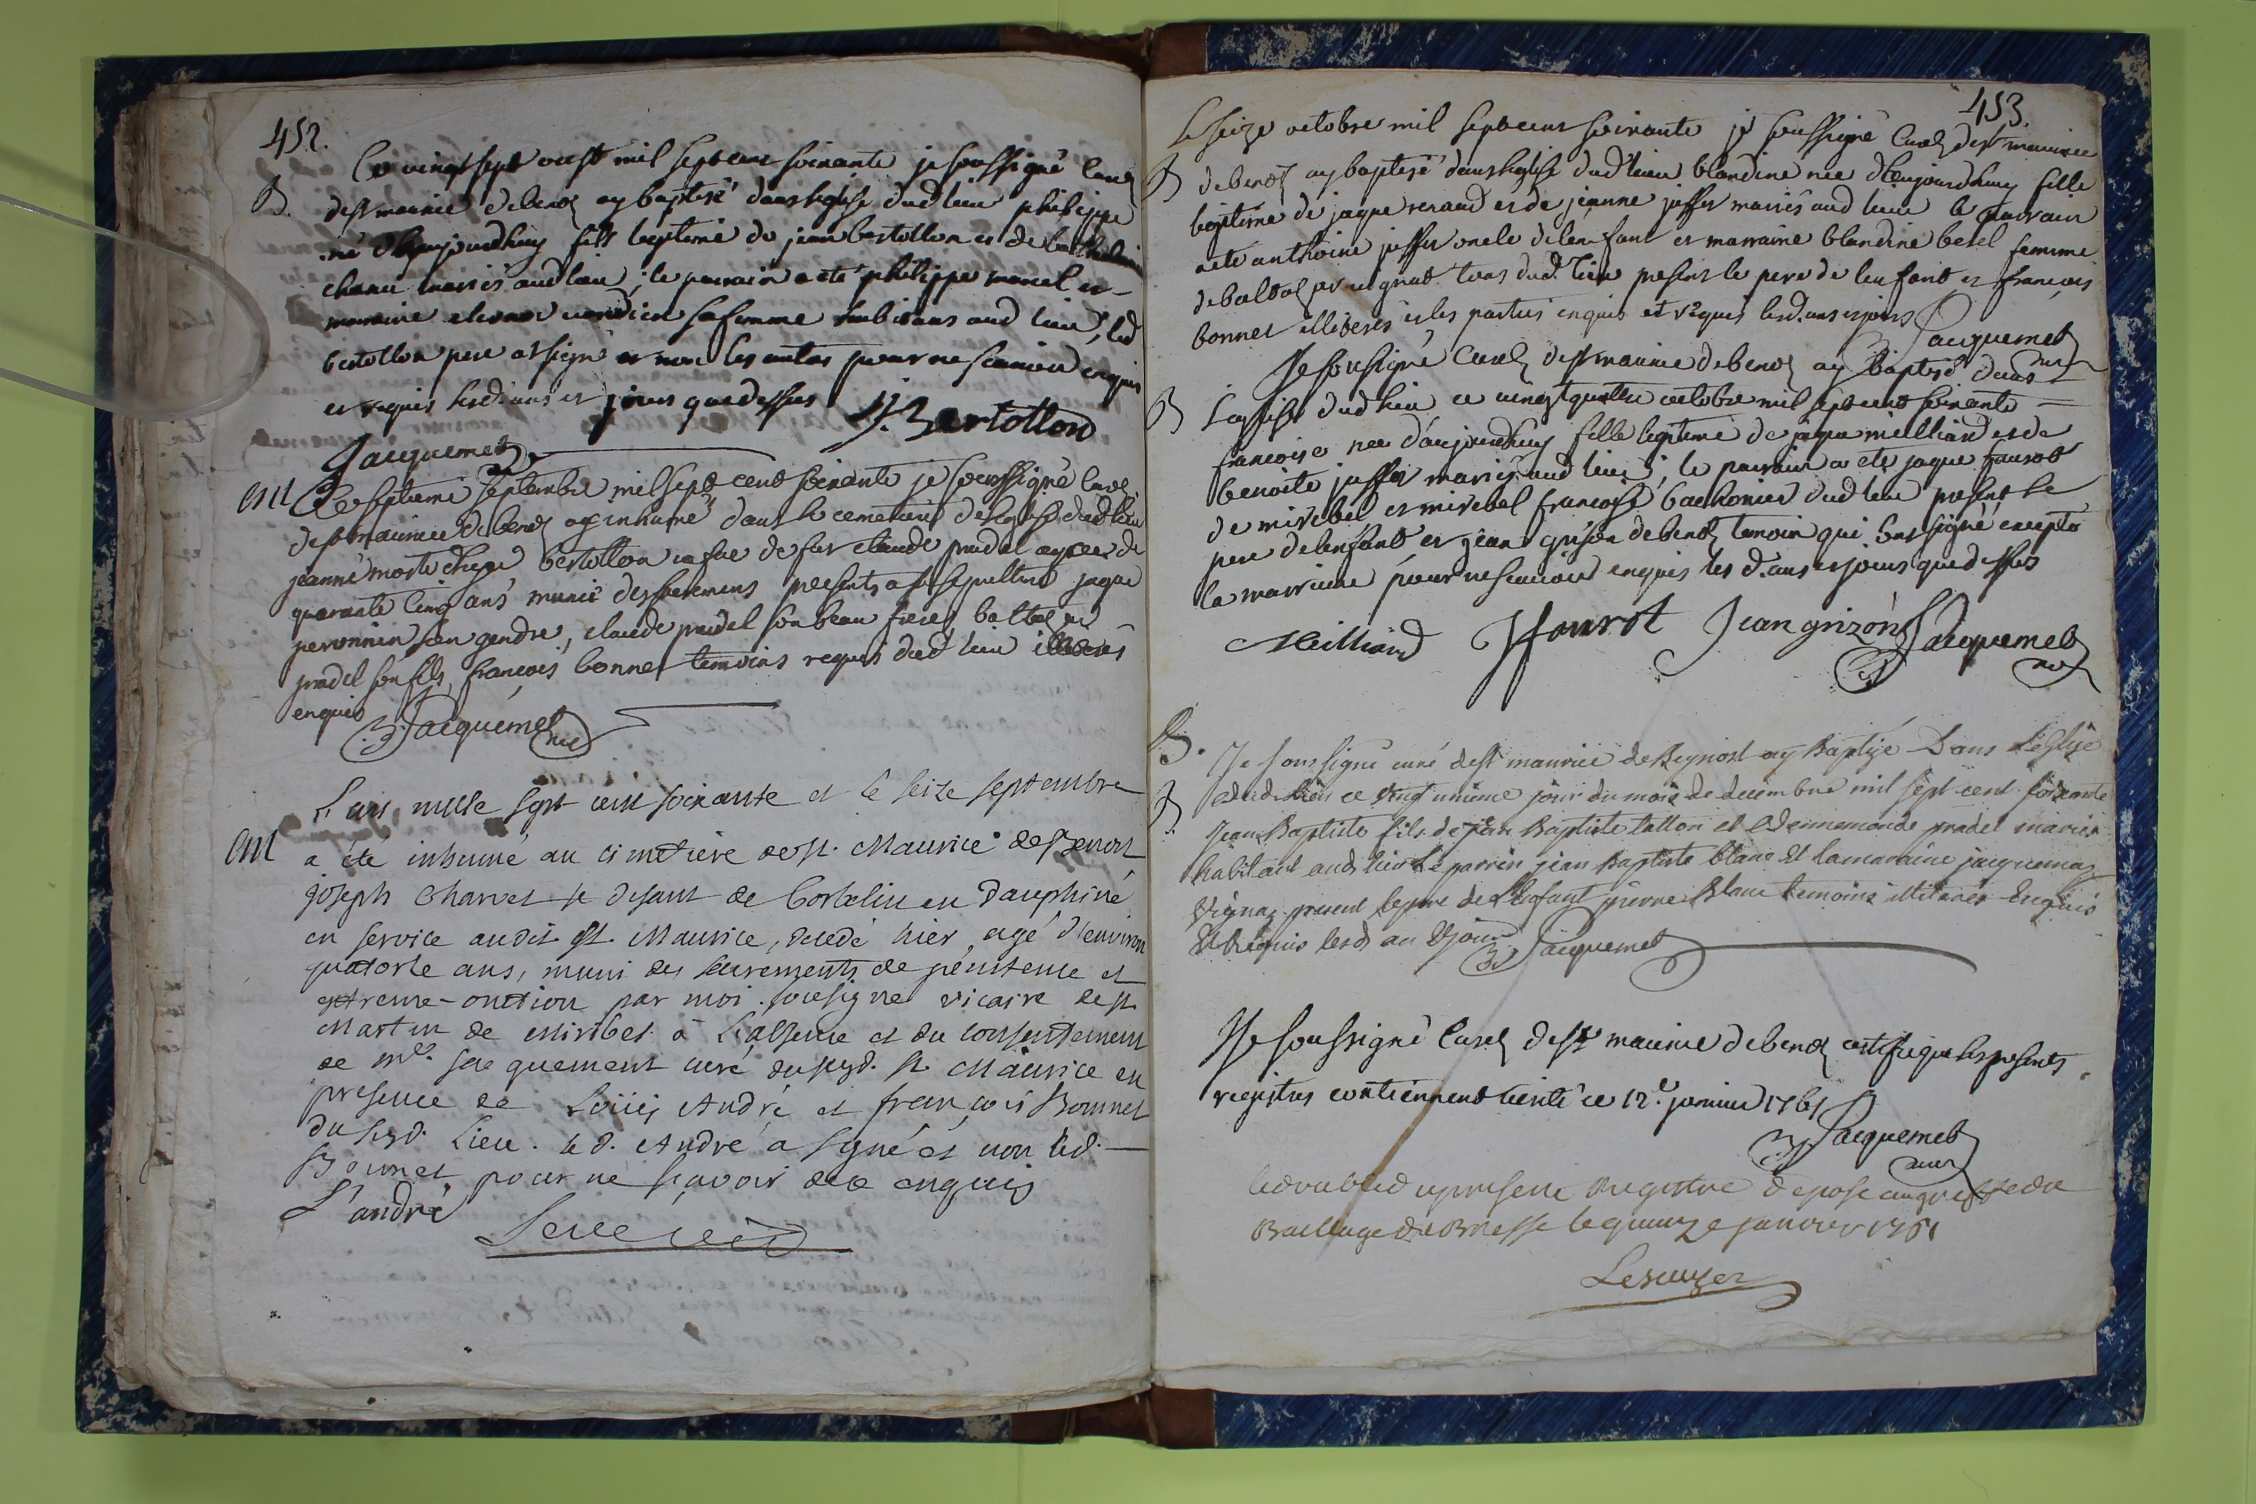 452.
Ce vingt sept oust mil sept cent soixante je soussigné curé
B. de st maurice de benoz ay baptisé dans leglise dud lieu philippe
né d'aujourdhuy fils legitime de jean bertollon et de
mariés aud lieu ; le parrain a eté philippe marcel et
marraine sa femme habitans aud lieu, led
bertollon pere a signé et non les autres pour ne scavoir enquis
et requis lesd. ans et jours que dessus J. Bertollon
Jacquemet
M Ce septieme septembre mil sept cent soixante je soussigné curé
de st maurice de benoz ay inhumé dans le cemetiere de leglise dud lieu
jeanne morte d'hyer bertollon vefve de feu claude pradel agee de
quarante cinq ans munie des sacremens presents a sa sepulture jaque
peronnin son gendre, claude pradel son beau frere, baltazar
pradel son fils, francois bonnet temoins requis dud lieu illiteres
enquis
Jacquemet curé
L'an mille sept cent soixante et le seize septembre
M a été inhumé au cimetiere de st. Maurice de Benost
joseph Charvet se disant de Corbelin en Dauphiné
en service audit st. Maurice, decedé hier agé d'environ
quatorse ans, muni des sacrements de penitence et
extreme-onction par moi sousigné vicaire de st
Martin de Miribel à l'absence et du consentement
de mre. jacquement curé dususd. st Maurice en
presence de Loüis André et françois Bonnet
dususd. Lieu. led. André a signé et non led.
Bonnet pour ne sçavoir de ce enquis
L'andré
453.
Le seize octobre mil sept cent soixante je soussigné curé de st maurice
B de benoz ay baptisé dans leglise dud lieu blandine née d'aujourdhuy fille
legitime de jaque renaud et de jeanne juffet mariés aud lieu le parrain
a eté anthoine juffet oncle de lenfant et marraine blandine berel femme
de baltazar tous dud. lieu present le pere de lenfant et francois
bonnet illiteres et les parties enquis et requis lesd. ans et jours Jacquemet
curé
Je soussigné curé de st maurice de benoz ay baptisé dans
B leglise dud lieu ce vingt quatre octobre mil sept cent soixante
francoise née d'aujourdhuy fille legitime de jaque milliand et de
benoite juffet mariés aud lieu ; le parrain a eté jaque faurot
de miribel et mirebel francoise dud lieu present le
pere de lenfant et jean grison de benoz temoin qui ont signé excepté
la marraine pour ne scavoir enquis les d. ans et jours que dessus
Milliand J fourot Jean grizon Jacquemet
curé
B. Je soussigné curé de st maurice de Beynost ay Baptizé Dans L'eglize
dud. Lieu ce vingt unieme jour du mois de decembre mil sept cent soixante
Jean Baptiste fils de jean Baptiste tallon et d'ennemonde pradel mariés
habitant aud. lieu Le parrin jean Baptiste blanc Et la maraine jacquema
Vignaz present le pere de L'enfant pierre Blanc temoins illiterés Enquis
Et Requis lesd. an Et jour Jacquemet
Je soussigné curé de st maurice de benoz certifie que les presents
registres contiennent verité ce 12e. janvier 1761
Jacquemet
curé
Le double du present Registre deposé au greffe du
Baillage de Bresse le quinze janvier 1761